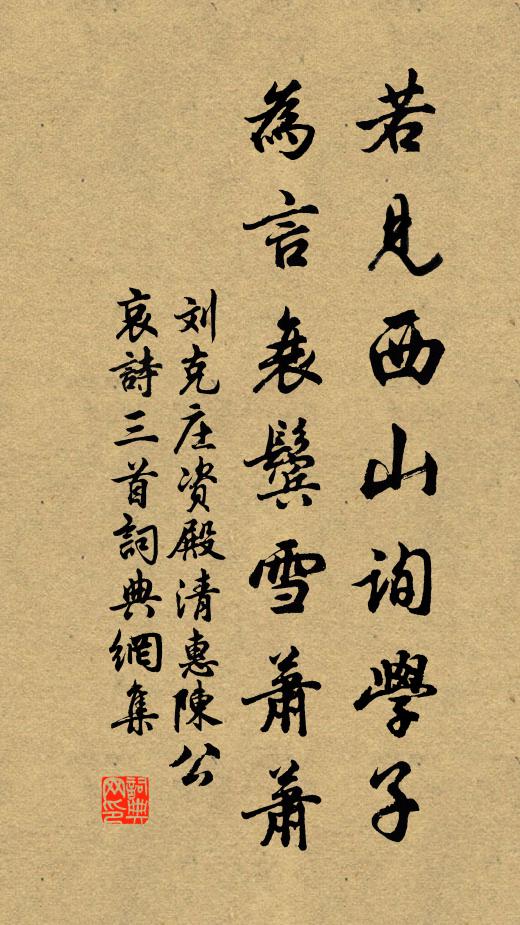 若見西山詢學子
為言衰鬢雪蕭蕭
刘克庄资殿清惠陳公
哀詩三首詞典網集
詞典
网印